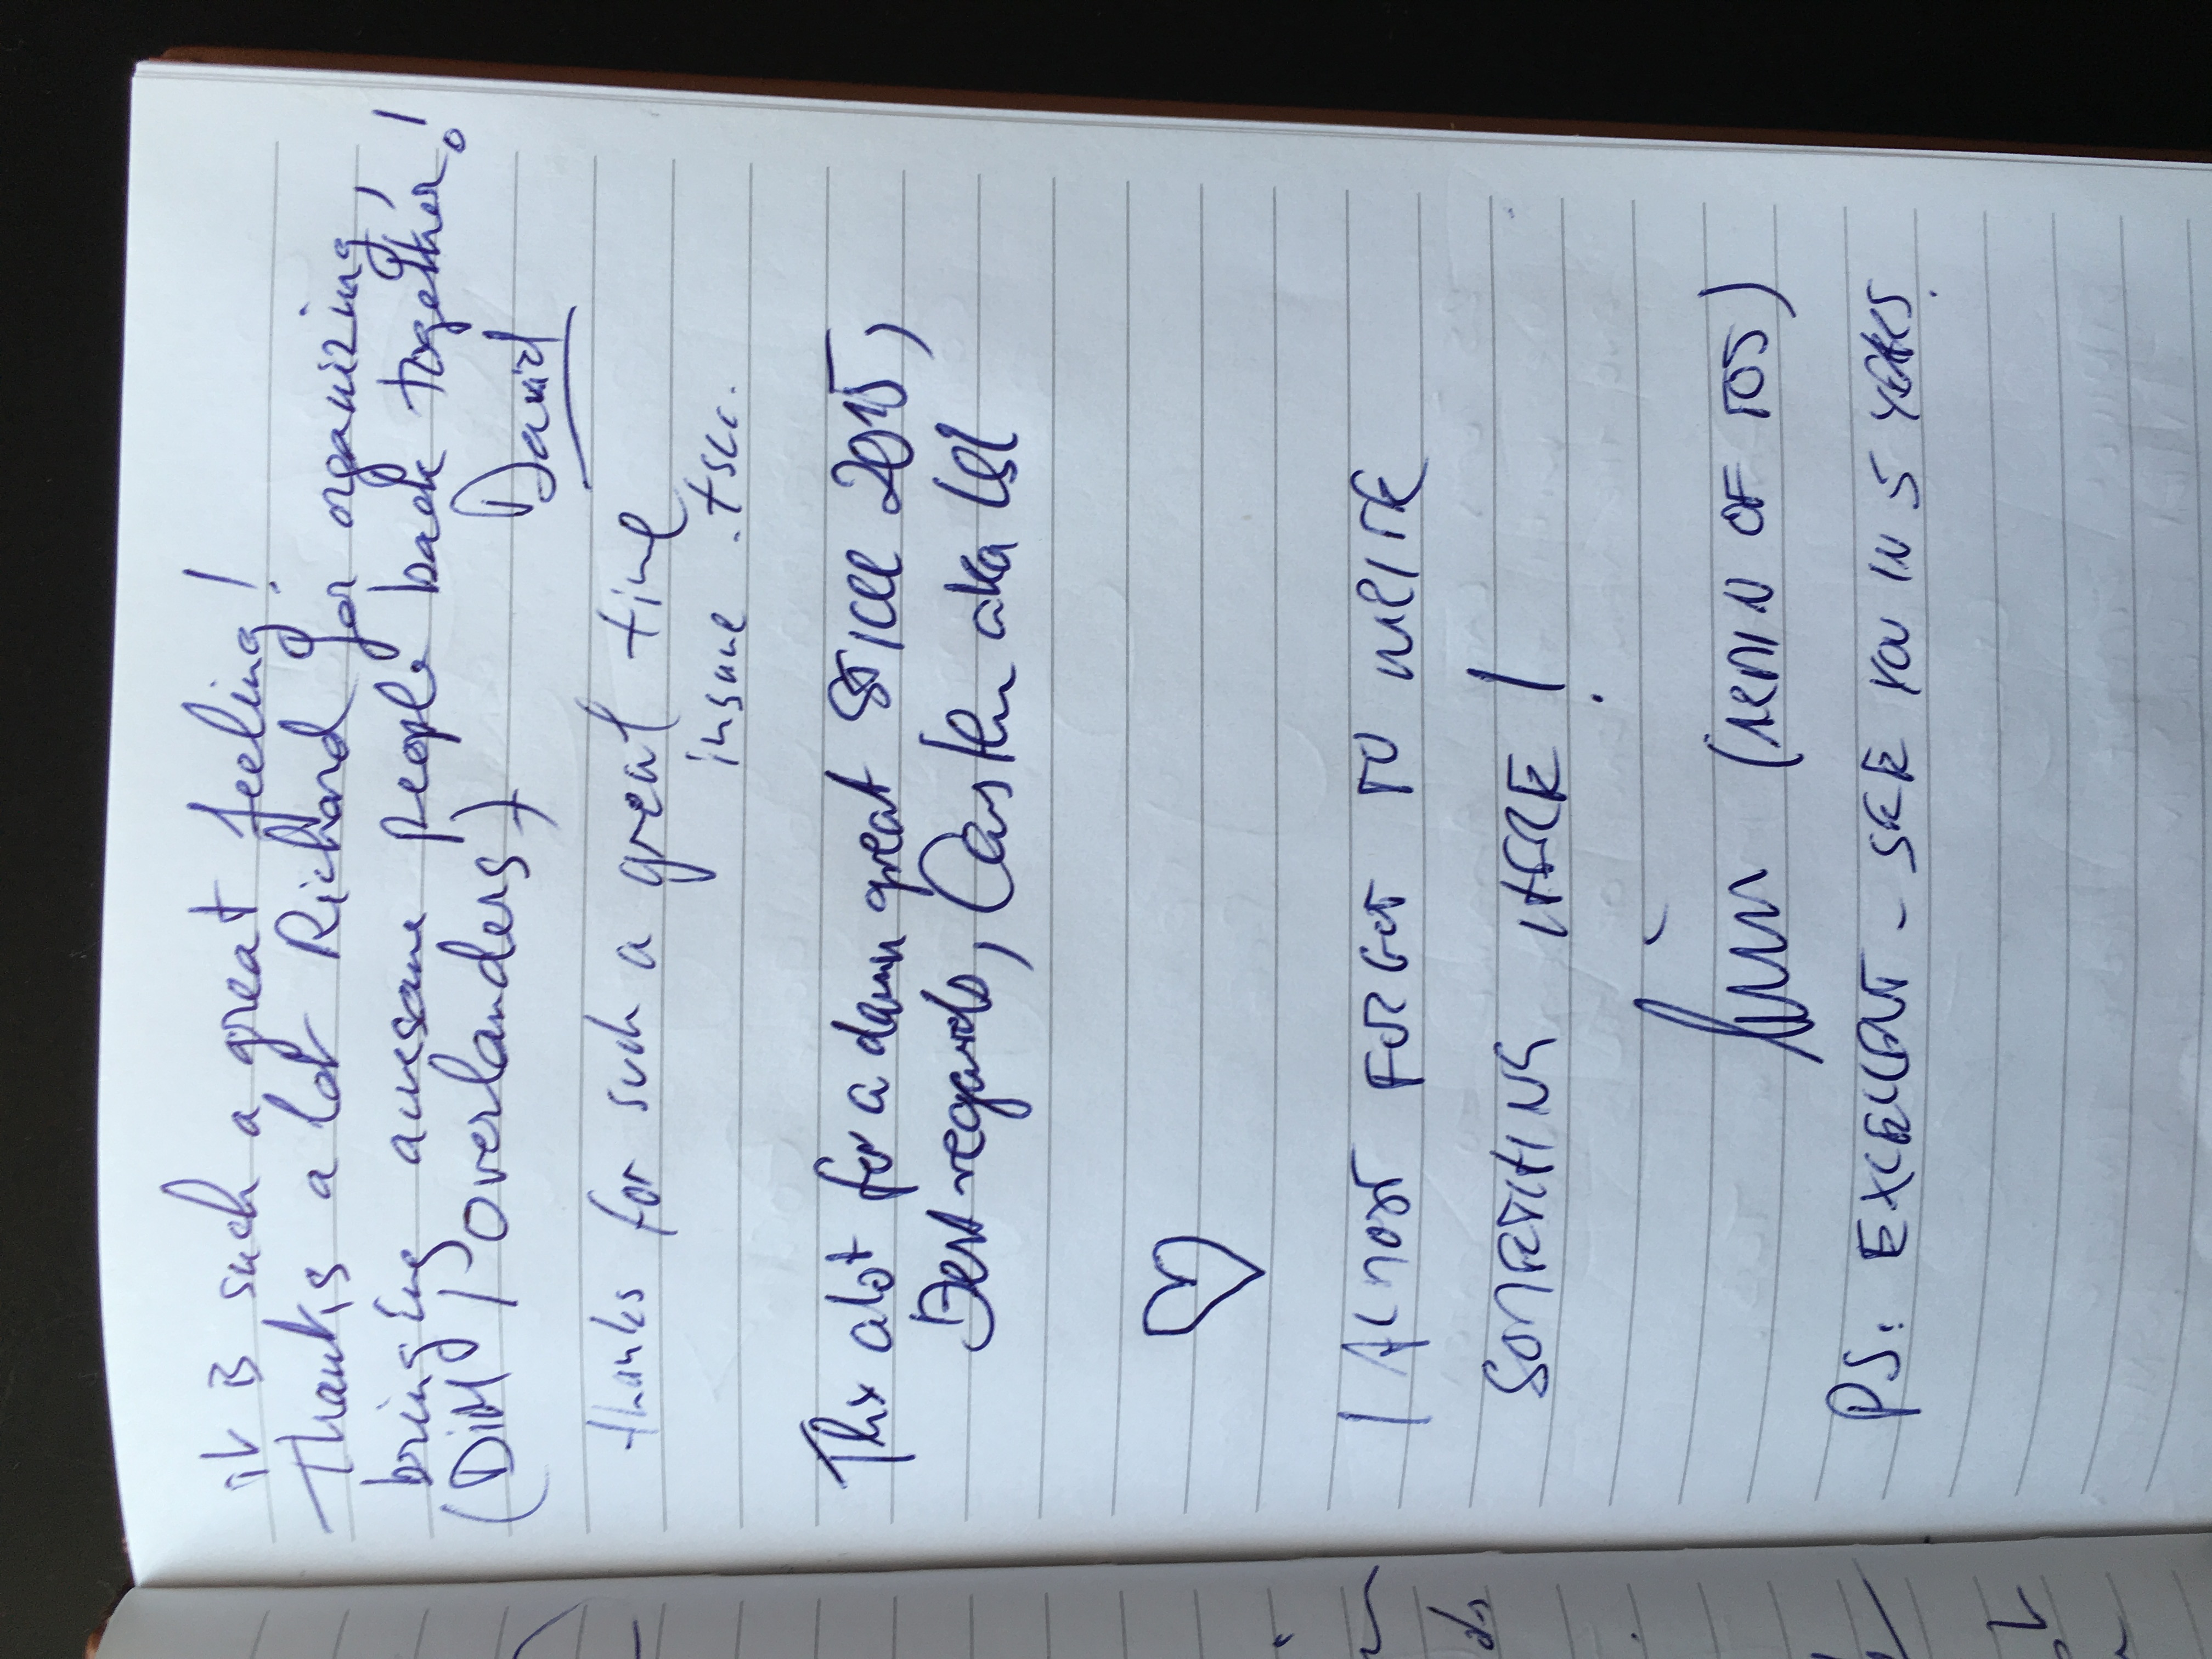 it is such a great feeling!
Thanks a lot Richard for organizing,
bringing awesome people back together!
(DiM / Overlanders)
David
thanks for such a great time
insane .tscc.
Thx alot for a damn great STICLL 2015,
Best regards, Carsten aka
I ALMOST FORGET TO WRITE
SOMETHING HERE!
(ARMIN OF TOS)
PS: EXCELLENT - SEE YOU IN 5 YEARS.